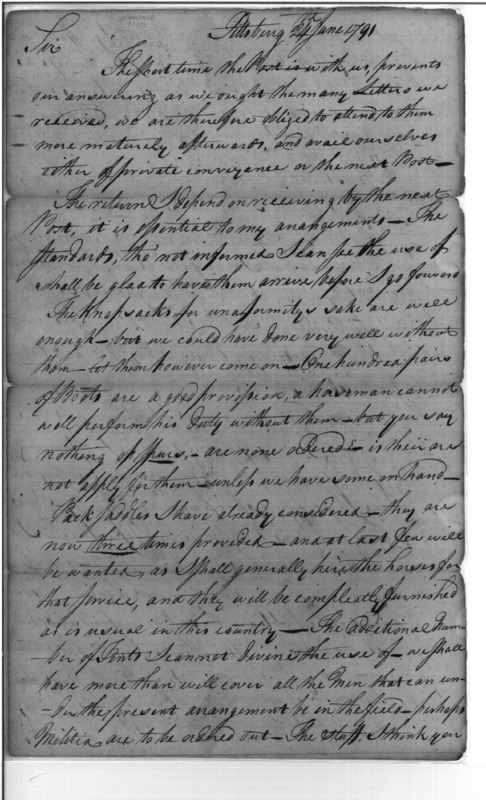 Pittsburg 24th June 1791
Sir
The short time the Post is with us, prevents
our answering as we ought the many Letters we
receeved, we are therefore obliged to attend to them
more maturely afterwards, and avail ourselves
either of private conveyance or the next Post—
The return I depend on receiving by the next
Post, it is essential to my arangements— The
Standards, tho' not informed I can see the use of
shall be glad to have them arrive before I go forward
The Knapsacks for unaformitys sake are well
enough— but we could have done very well without
them— let them however come on— One hundred pairs
of Boots are a good provission, a horseman cannot
well perform his duty without them— but you say
nothing of spurs,— are none ordered— is their are
not apply for them— unless we have some on hand—
Pack saddles I have already considered— they are
now three times provided— and at last few will
be wanted, as I shall generally hire the horses for
that service, and they will be compleatly furnished
as is usual in this country— The additional Num-
ber of Tents I cannot divine the use of— we shall
have more than will cover all the Men that can un-
-der the present arangement be in the field— perhaps
Militia are to be ordered out— The Staff, I think you